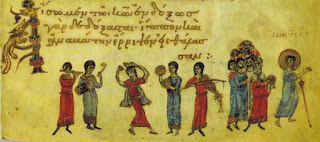 Ασωμεν τῶ κῶ ἐνδόξως
γὰρ δεδόξασται ἵππον καὶ
ἀναβάτην ἔρριψεν εἰς θάλασ
σαν